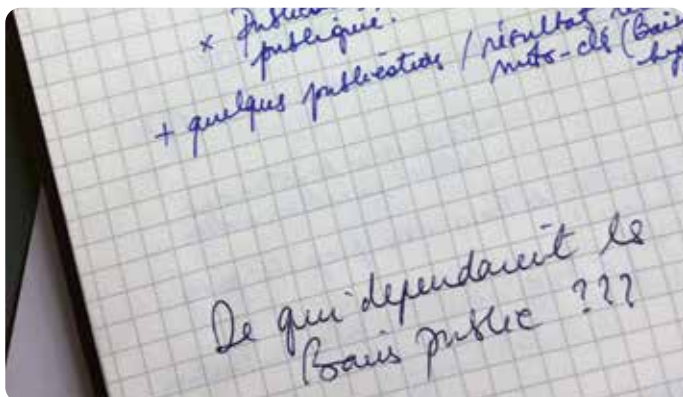 × Public
publique.
+ quelques publications / résultat
mots-clé (Bain
De qui dependaient les
Bains public ???